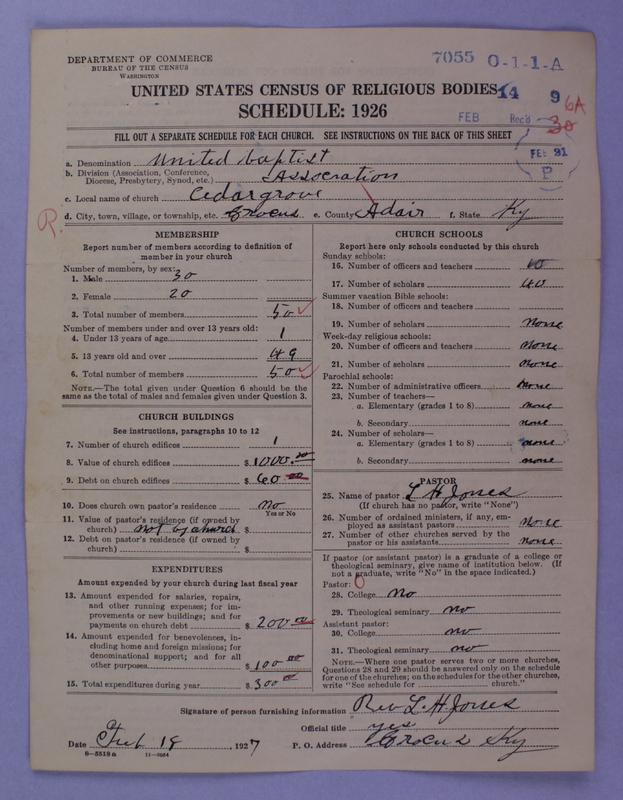 DEPARTMENT OF COMMERCE
BUREAU OF THE CENSUS
WASHINGTON
7055 0-1-1-A
UNITED STATES CENSUS OF RELIGIOUS BODIES
14 9 6A
SCHEDULE: 1926
FEB Rec'd 30
FILL OUT A SEPARATE SCHEDULE FOR EACH CHURCH. SEE INSTRUCTIONS ON THE BACK OF THIS SHEET
FEB 21
P
a. Denomination United baptist
b. Division (Association, Conference, Diocese, Presbytery, Synod, etc.) Association
c. Local name of church Cedargrove
d. City, town, village, or township, etc. Crocus e. County Adair f. State Ky
R.
MEMBERSHIP
Report number of members according to definition of
member in your church
Number of members, by sex:
1. Male 30
2. Female 20
3. Total number of members 50
Number of members under and over 13 years old:
4. Under 13 years of age 1
5. 13 years old and over 49
6. Total number of members 50
NOTE.—The total given under Question 6 should be the
same as the total of males and females given under Question 3.
CHURCH BUILDINGS
See instructions, paragraphs 10 to 12
7. Number of church edifices 1
8. Value of church edifices $ 1000.00
9. Debt on church edifices $ 60 00
10. Does church own pastor's residence no
Yes or No
11. Value of pastor's residence (if owned by
church) not by church $
12. Debt on pastor's residence (if owned by
church) $
EXPENDITURES
Amount expended by your church during last fiscal year
13. Amount expended for salaries, repairs,
and other running expense; for im-
provements or new buildings; and for
payments on church debt $ 200 00
14. Amount expended for benevolences, in-
cluding home and foreign missions; for
denominational support; and for all
other purposes $ 100 00
15. Total expenditures during year $ 300 00
CHURCH SCHOOLS
Report here only schools conducted by this church
Sunday schools:
16. Number of officers and teachers 10
17. Number of scholars 40
Summer vacation Bible schools:
18. Number of officers and teachers
19. Number of scholars none
Week-day religious schools:
20. Number of officers and teachers none
21. Number of scholars none
Parochial schools:
22. Number of administrative officers none
23. Number of teachers—
a. Elementary (grades 1 to 8) none
b. Secondary none
24. Number of scholars—
a. Elementary (grades 1 to 8) none
b. Secondary none
PASTOR
25. Name of pastor L H Jones
(If church has no pastor, write "None")
26. Number of ordained ministers, if any, em-
ployed as assistant pastors none
27. Number of other churches served by the
pastor or his assistants none
If pastor (or assistant pastor) is a graduate of a college or
theological seminary, give name of institution below. (If
not a graduate, write "No" in the space indicated.)
Pastor: 0
28. College No
29. Theological seminary no
Assistant pastor:
30. College no
31. Theological seminary no
NOTE.—Where one pastor serves two or more churches,
Questions 28 and 29 should be answered only on the schedule
for one of the churches; on the schedules for the other churches,
write "See schedule for church."
Signature of person furnishing information Rev L. H. Jones
Official title yes
Date Feb 19, 1927 P. O. Address Crocus Ky
8-5518a 11-9084